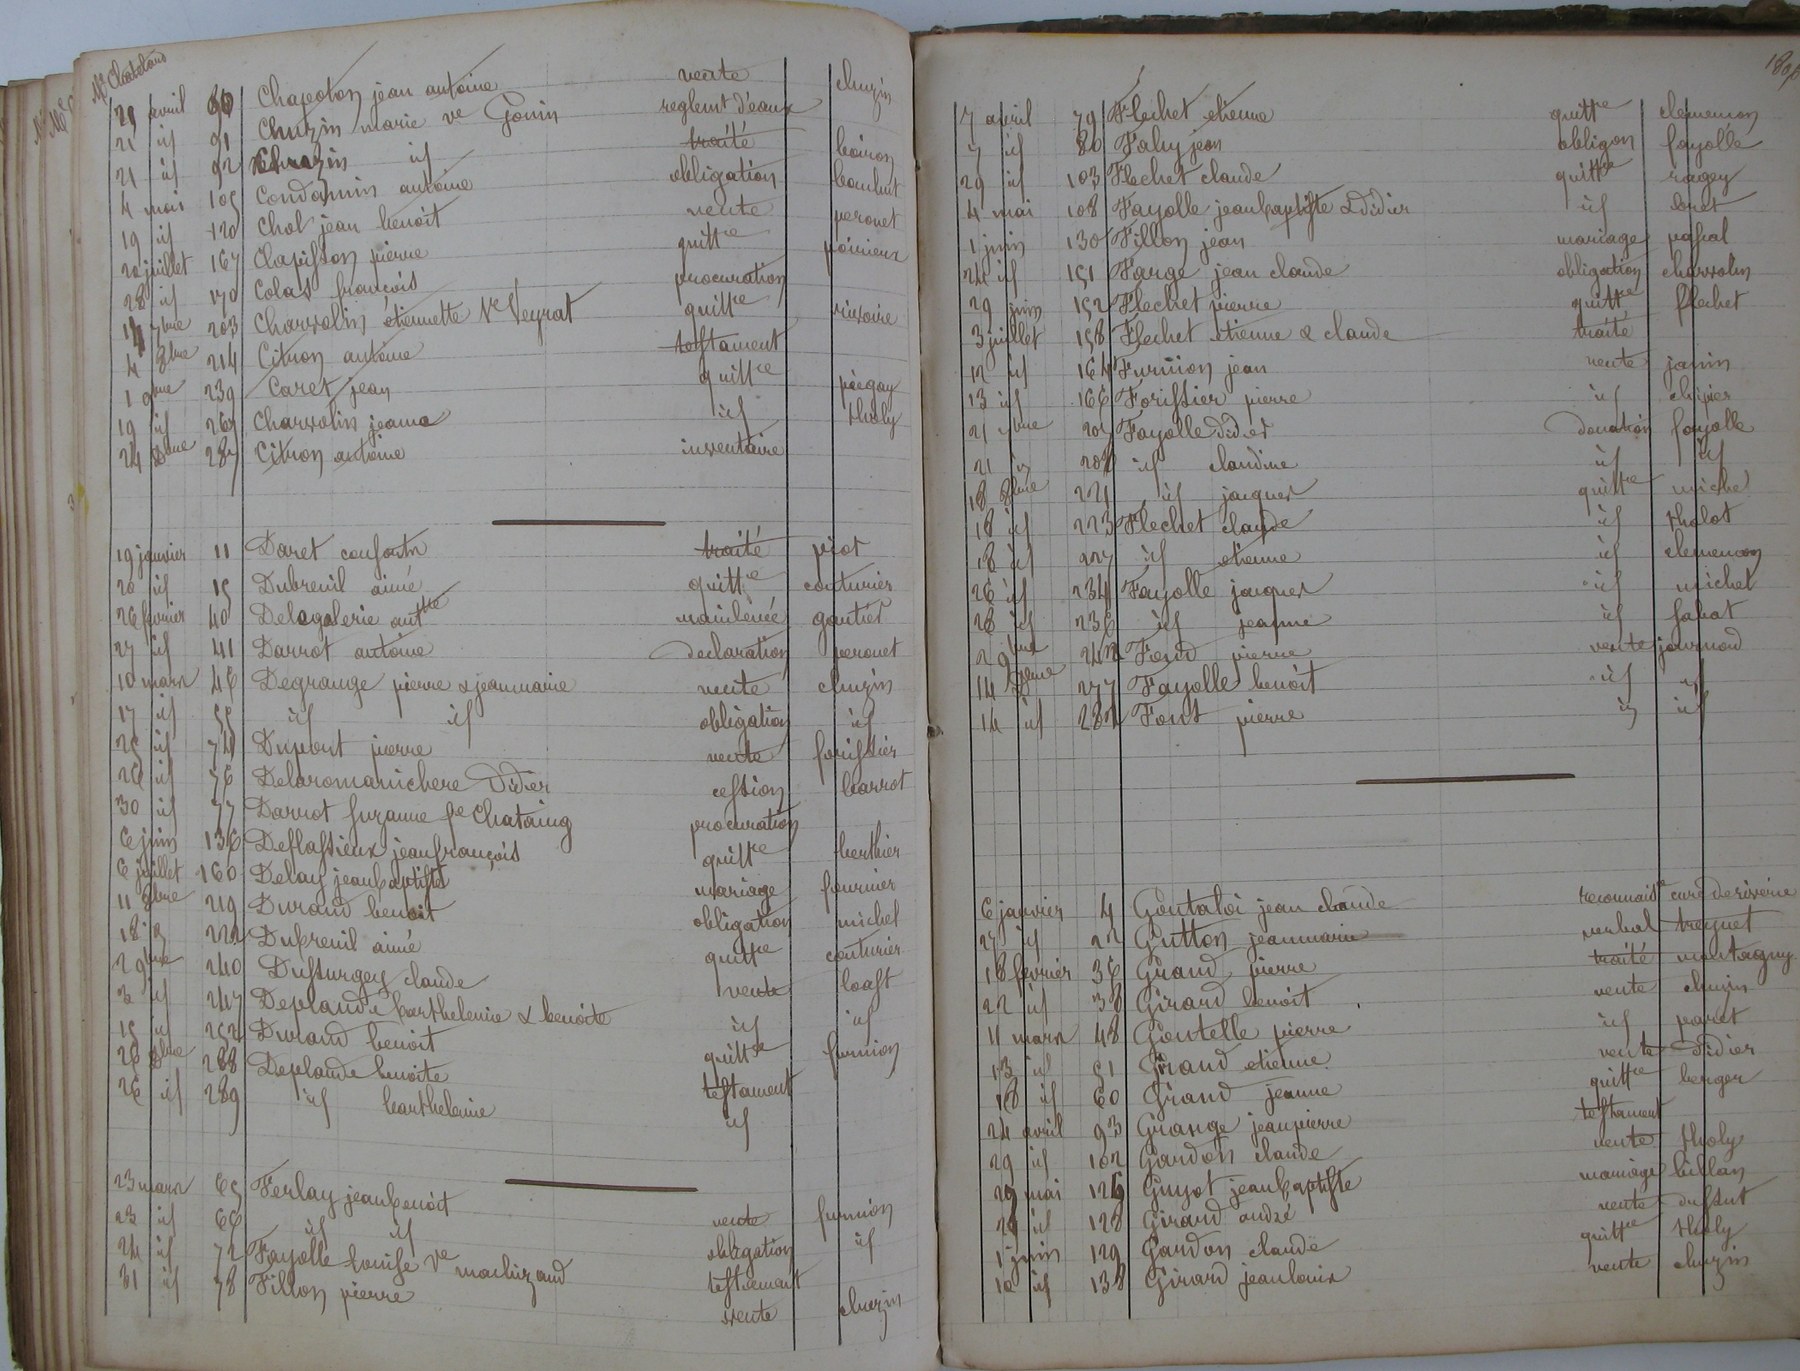 Me Chatelard
21 avril 90 Chapoton jean antoine vente chuzin
21 id 91 Chuzin marie ve Gonin reglemt d'eaux
21 id 92 Chuzin id traité boiron
4 mai 105 Condamin antoine obligation
19 id 120 Chol jean benoit vente peronet
20 juillet 167 Clapisson pierre quittce poirieux
28 id 170 Colas françois procuration
14 7bre 203 Charvolin etiennette ve Veyrat quittce rivoire
4 8bre 214 Citron antoine testament
1 9bre 239 Caret jean quittce piegay
19 id 269 Charvolin jeanne id tholy
24 Xbre 287 Citron antoine inventaire
19 janvier 11 Daret traité piot
20 id 15 Dubreuil aimé quittce couturier
26 fevrier 40 Delagalerie antne mainlevée gautier
27 id 41 Darrot antoine declaration peronet
10 mars 46 Degrange pierre & jeanmarie vente chuzin
17 id 55 id id obligation id
25 id 74 Dupont pierre vente forissier
26 id 76 Delaromanichere Didier cession barrot
30 id 77 Darrot suzanne fe Chataing procuration
6 juin 136 Deflassieux jeanfrançois quittce berthier
6 juillet 160 Delay jeanbaptiste mariage fournier
11 8bre 219 Durand benoit obligation michel
18 id 222 Dubreuil aimé quittce couturier
2 9bre 240 Dussurgey claude vente boast
3 id 247 Deplaude barthelemie & benoite id id
15 id 252 Durand benoit quittce furnion
26 Xbre 288 Deplaude benoite testament
26 id 289 id barthelemie id
23 mars 65 Ferlay jeanbenoit vente furnion
23 id 66 id id obligation id
24 id 72 Fayolle louise ve machizaud testament
31 id 78 Fillon pierre vente chuzin
180
7 avril 79 Flechet etienne quittce clemencon
7 id 80 Fahy jean obligon fayolle
29 id 103 Flechet claude quittce ragey
4 mai 108 Fayolle jeanbaptiste & didier id
1 juin 130 Fillon jean mariage pascal
24 id 151 Farge jean claude obligation charvolin
29 juin 152 Flechet pierre quittce flechet
3 juillet 158 Flechet etienne & claude traité
12 id 164 Furnion jean vente janin
13 id 166 Forissier pierre id chipier
21 7bre 205 Fayolle didier donation fayolle
21 id 20 id claudine id id
18 8bre 221 id jacques quittce michel
18 id 223 Flechet claude id tholot
18 id 227 id etienne id clemencon
26 id 234 Fayolle jacques id michel
28 id 236 id jeanne id sabat
2 9bre 242 Fond pierre vente journoud
14 Xbre 277 Fayolle benoit id id
14 id 282 Font pierre id id
6 janvier 4 Goutaloi jean claude reconnaisce curé de riverie
27 id 22 Gutton jeanmarie verbal treynet
18 fevrier 36 Grand pierre traité montagny
22 id 38 Girard benoit vente chuzin
11 mars 48 Goutelle pierre id paret
13 id 51 Grand etienne vente didier
18 id 60 Grand jeanne quittce berger
24 avril 93 Grange jeanpierre testament
29 id 102 Gardon claude vente tholy
29 mai 126 Guyot jeanbaptiste mariage billan
29 id 128 Girard andré vente dussut
1 juin 129 Gardon claude quittce tholy
10 id 138 Girard jeanlouis vente chuzin